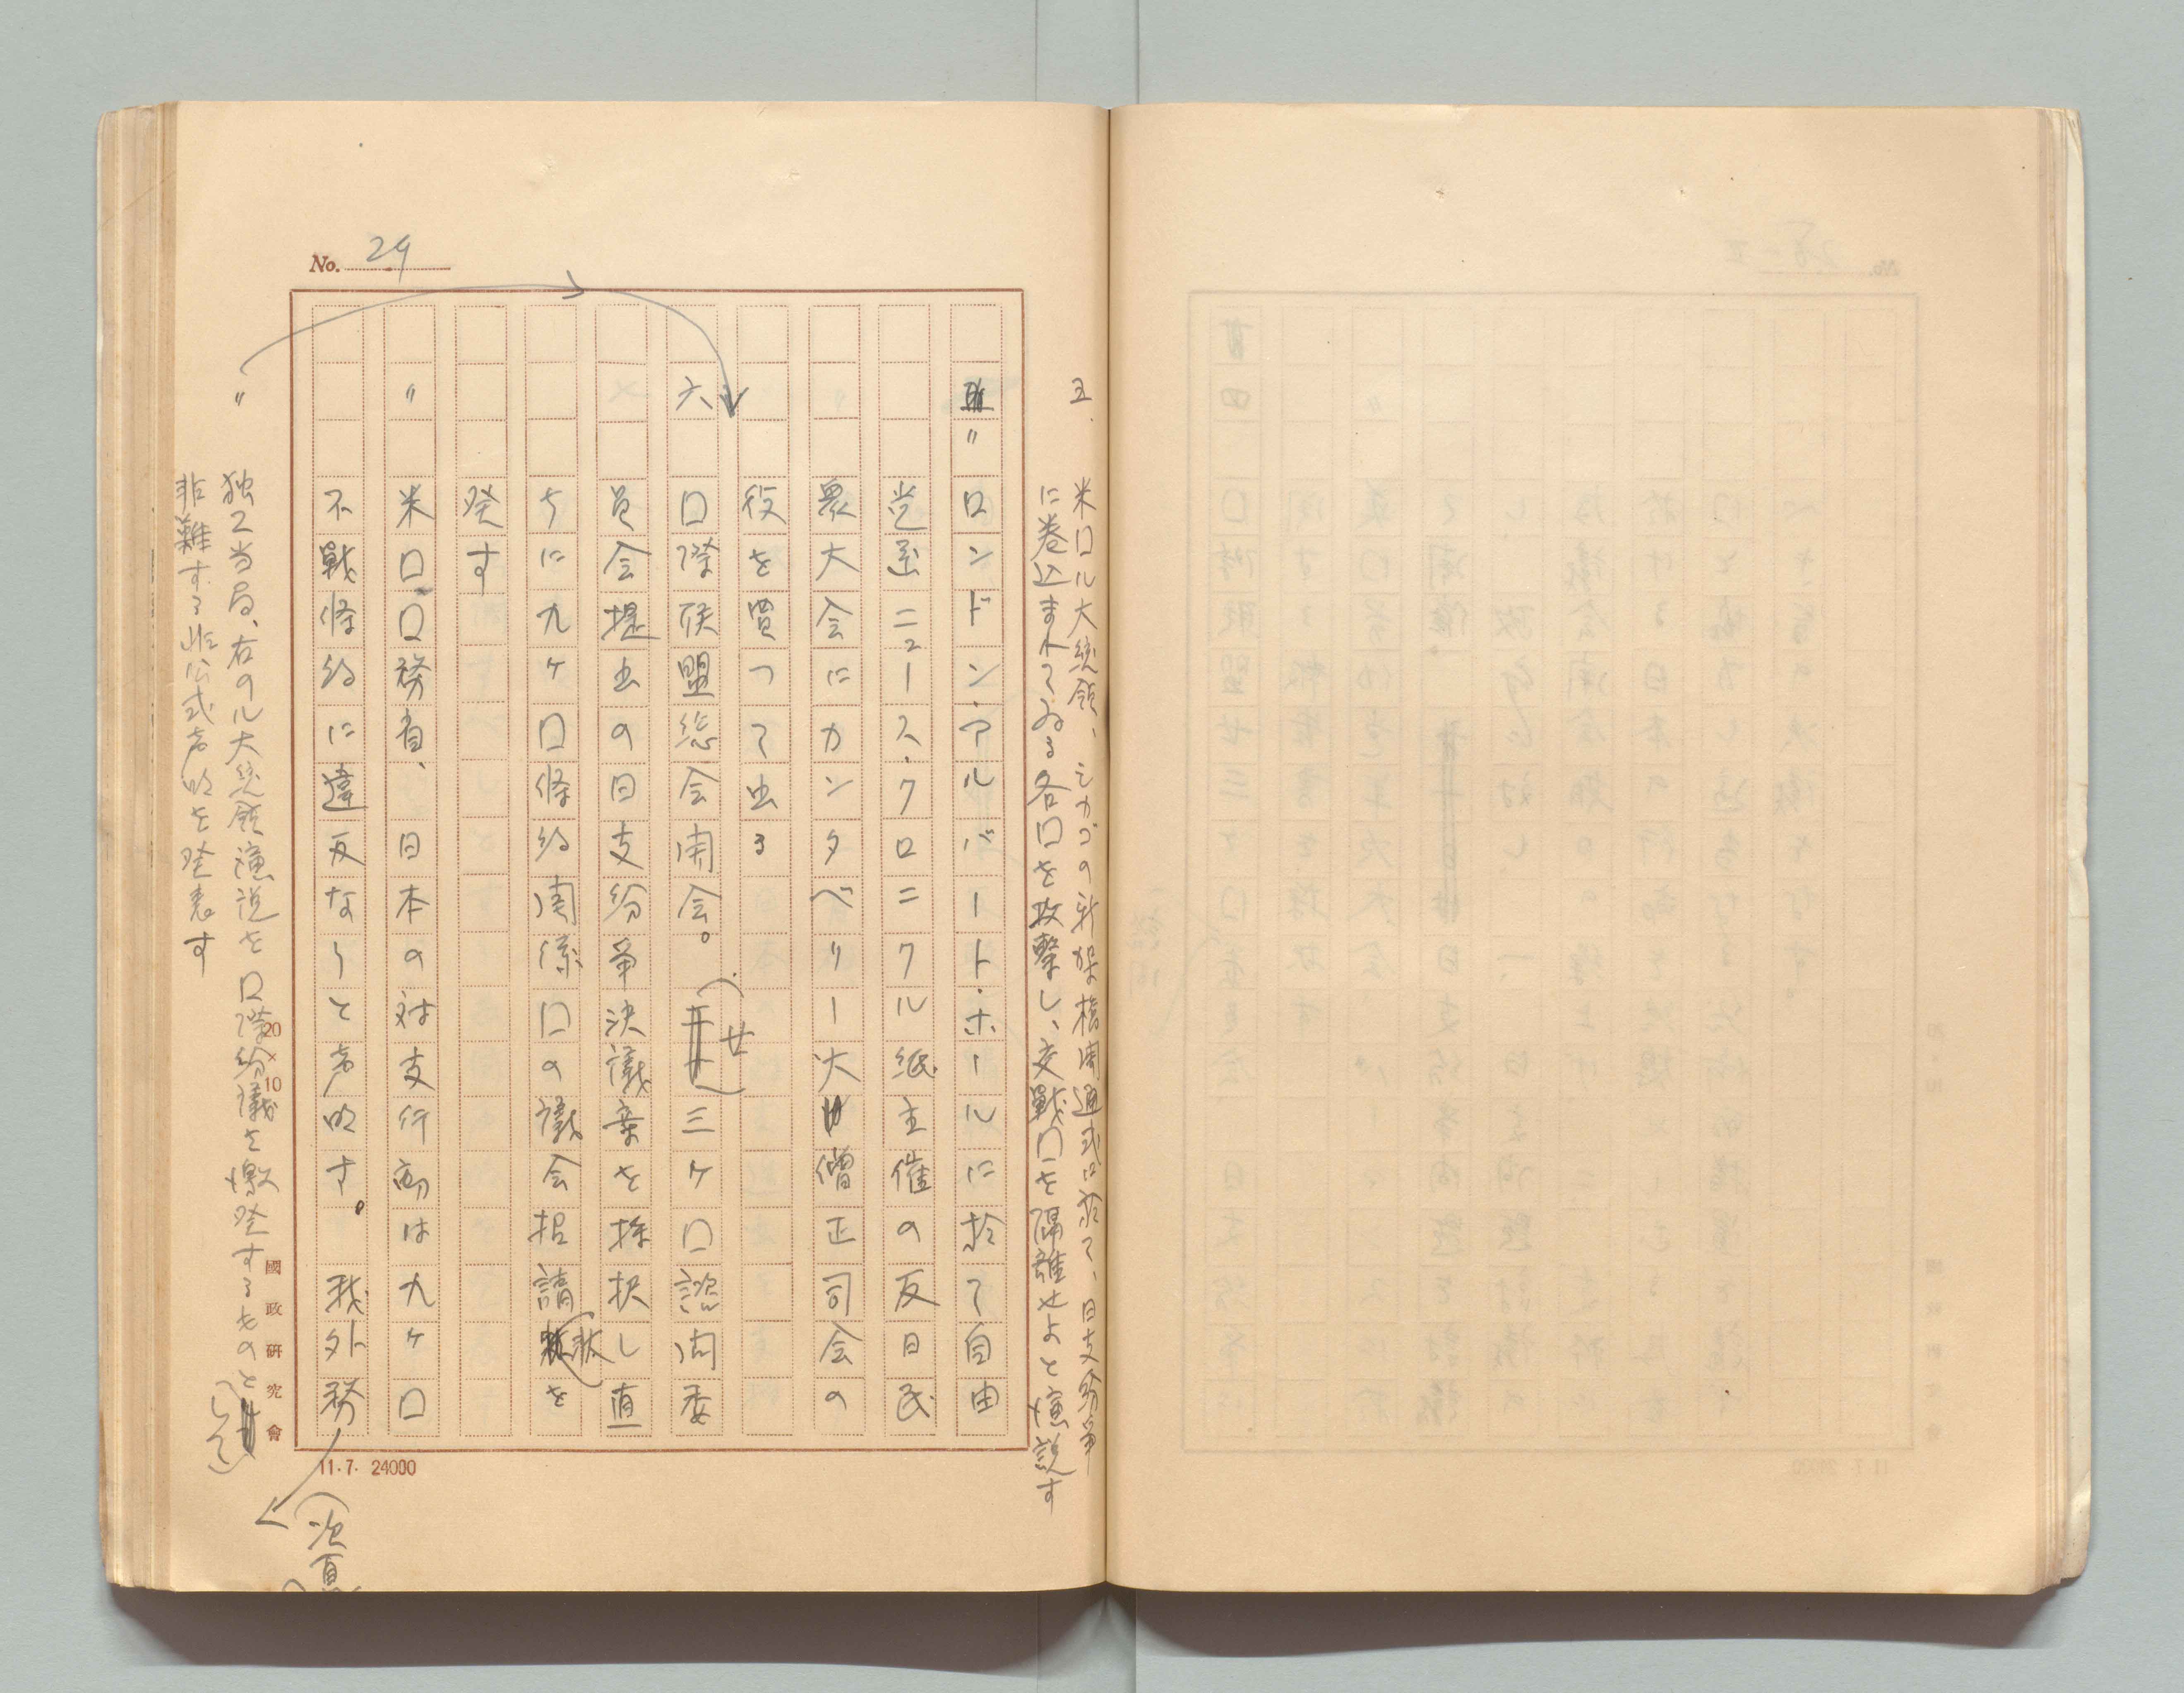 No. 29
五、米国ル大統領、シカゴの新架橋開通式に於て、日支紛争
に巻込まれてゐる各国を攻撃し、交戦国を隔離せよと演説す
〃ロンドン・アルバート・ホールに於て自由
党系ニュース・クロニクル紙主催の反日民
衆大会にカンタベリー大僧正司会の
役を買つて出る
六、国際聯盟総会開会。(廿)三ケ国諮問委
員会提出の日支紛争決議案を採択し直
ちに九ケ国条約関係国の議会招請状を
発す
〃米国国務省、日本の対支行動は九ケ国
不戦条約に違反なりと声明す。我外務
〃独乙当局、右のル大統領演説を国際紛議を激発するものと(して)
非難する非公式声明を発表す
20×10
國政研究會
11.7. 24000
(次頁